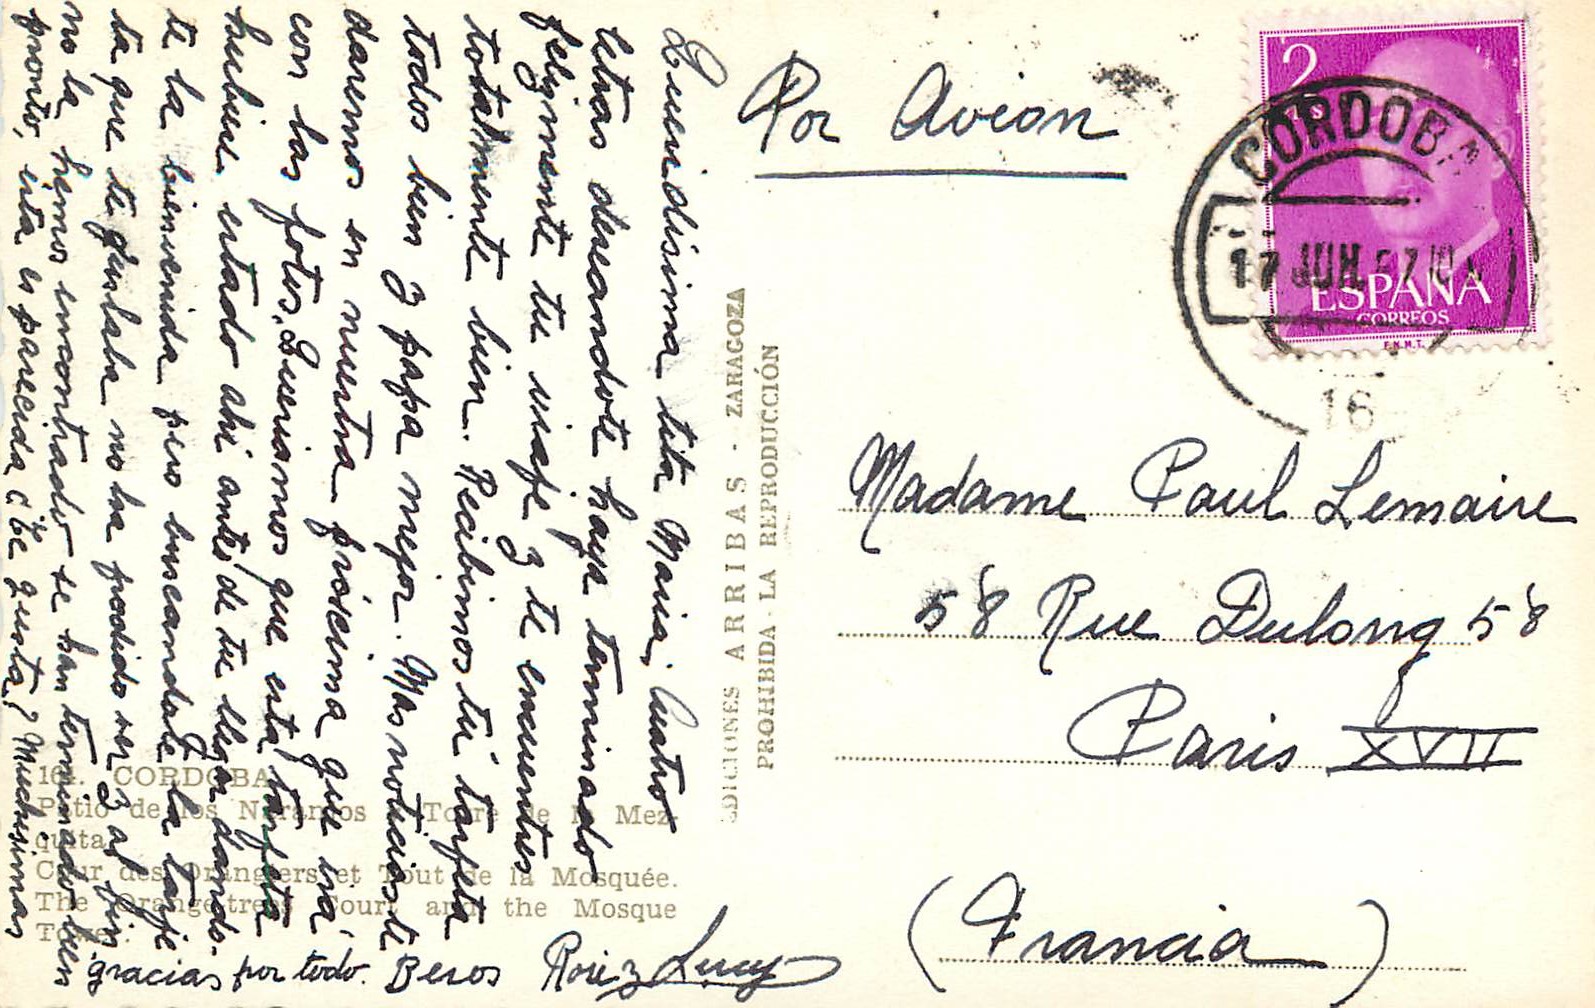 Queridisima tita Maria, Cuatro
letras deseandote haya terminado
felizmente tu viaje y te encuentres
totalmente bien. Recibimos tu tarjeta
todos bien y papa mejor. Mas noticias te
daremos en nuestra próxima que irá
con las fotos. Queriamos que esta tarjeta
hubiese estado ahi antes de tu llegar dando-
te la bienvenida pero buscandote la tarje
ta que te gustaba no ha podido ser y al fin
no la hemos encontrado se han terminado bien
pronto, esta es parecida ¿te gusta? Muchisimas
gracias por todo. Besos
Lucy
Por Avion
2
PTS
ESPAÑA
CORREOS
F.N.M.T.
CORDOBA
17 JUN. 57
16
Madame Paul Lemaire
58 Rue Dulong 58
Paris XVII
(Francia)
EDICIONES ARRIBAS - ZARAGOZA
PROHIBIDA LA REPRODUCCIÓN
CORDOBA
Patio de los Naranjos Torre de la Mez-
quita
Cour des Orangiers et Tout de la Mosquée.
The Orange-trees Court and the Mosque
Tower.